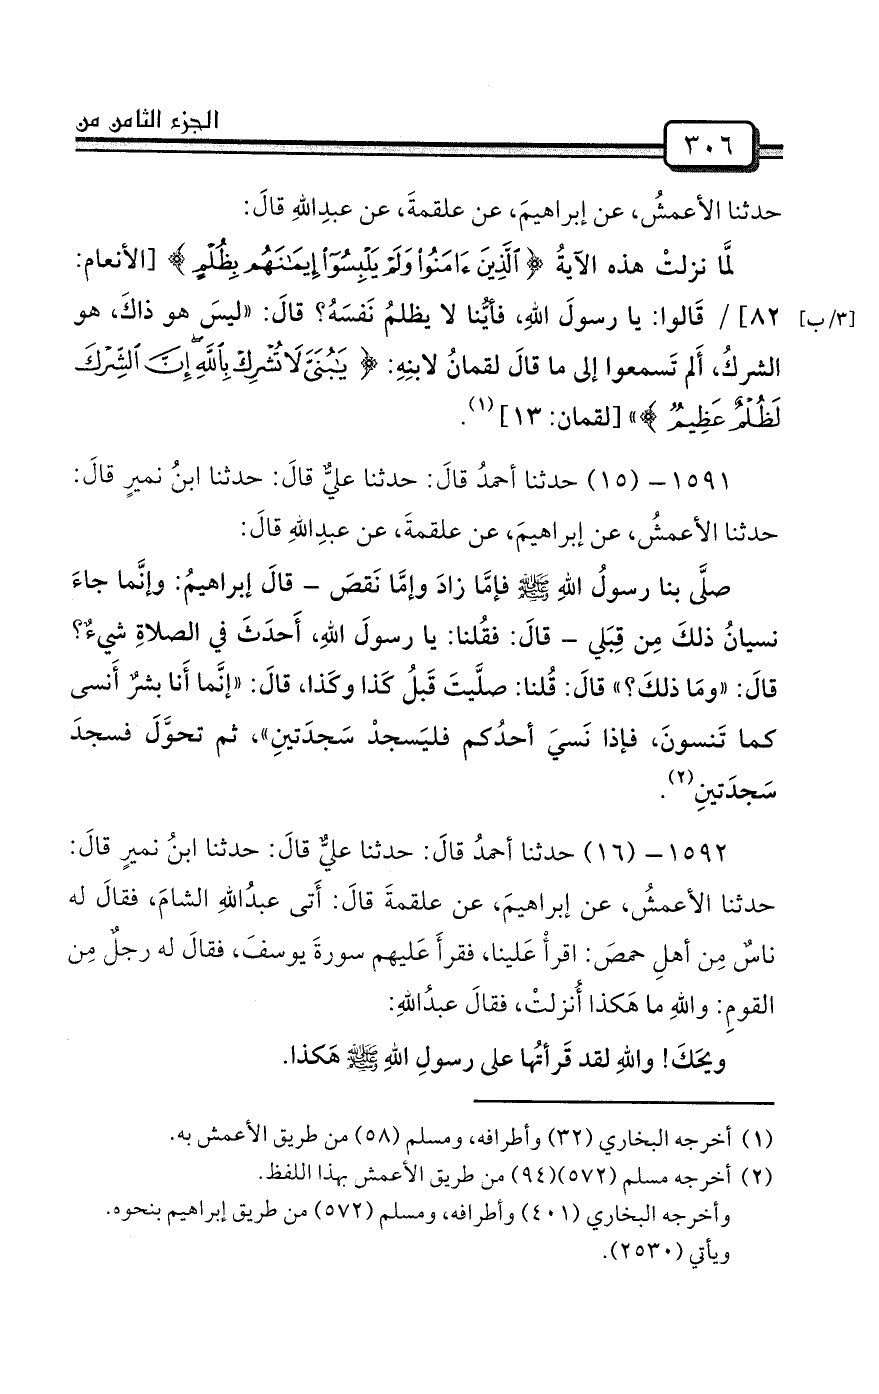 الجزء الثامن من
٣٠٦
حدثنا الأعمشُ، عن إبراهيمَ، عن علقمةَ، عن عبدِاللهِ قالَ:
لمَّا نزلتْ هذه الآيةُ ﴿ ٱلَّذِينَ ءَامَنُوا۟ وَلَمْ يَلْبِسُوٓا۟ إِيمَـٰنَهُم بِظُلْمٍ ﴾ [الأنعام:
[٣/ب] ٨٢] / قَالوا: يا رسولَ اللهِ، فأيُّنا لا يظلمُ نَفسَهُ؟ قالَ: «ليسَ هو ذاكَ، هو
الشركُ، أَلم تَسمعوا إلى ما قالَ لقمانُ لابنِهِ: ﴿ يَـٰبُنَىَّ لَا تُشْرِكْ بِٱللَّهِ ۖ إِنَّ ٱلشِّرْكَ
لَظُلْمٌ عَظِيمٌ ﴾» [لقمان: ١٣] (١).
١٥٩١- (١٥) حدثنا أحمدُ قالَ: حدثنا عليٌّ قالَ: حدثنا ابنُ نميرٍ قالَ:
حدثنا الأعمشُ، عن إبراهيمَ، عن علقمةَ، عن عبدِاللهِ قالَ:
صلَّى بنا رسولُ اللهِ ﷺ فإمَّا زادَ وإمَّا نَقصَ - قالَ إبراهيمُ: وإنَّما جاءَ
نسيانُ ذلكَ مِن قِبَلي - قالَ: فقُلنا: يا رسولَ اللهِ، أَحدَثَ في الصلاةِ شيءٌ؟
قالَ: «ومَا ذلكَ؟» قالَ: قُلنا: صلَّيتَ قَبلُ كَذا وكَذا، قالَ: «إنَّما أَنا بشرٌ أَنسى
كما تَنسونَ، فإذا نَسيَ أحدُكم فليَسجدْ سَجدَتينِ»، ثم تحوَّلَ فسجدَ
سَجدَتينِ(٢).
١٥٩٢- (١٦) حدثنا أحمدُ قالَ: حدثنا عليٌّ قالَ: حدثنا ابنُ نميرٍ قالَ:
حدثنا الأعمشُ، عن إبراهيمَ، عن علقمةَ قالَ: أَتى عبدُاللهِ الشامَ، فقالَ له
ناسٌ مِن أهلِ حمصَ: اقرأْ عَلينا، فقرأَ عَليهم سورةَ يوسفَ، فقالَ له رجلٌ مِن
القومِ: واللهِ ما هَكذا أُنزلتْ، فقالَ عبدُاللهِ:
ويحَكَ! واللهِ لقد قَرأتُها على رسولِ اللهِ ﷺ هَكذا.
(١) أخرجه البخاري (٣٢) وأطرافه، ومسلم (٥٨) من طريق الأعمش به.
(٢) أخرجه مسلم (٥٧٢)(٩٤) من طريق الأعمش بهذا اللفظ.
وأخرجه البخاري (٤٠١) وأطرافه، ومسلم (٥٧٢) من طريق إبراهيم بنحوه.
ويأتي (٢٥٣٠).